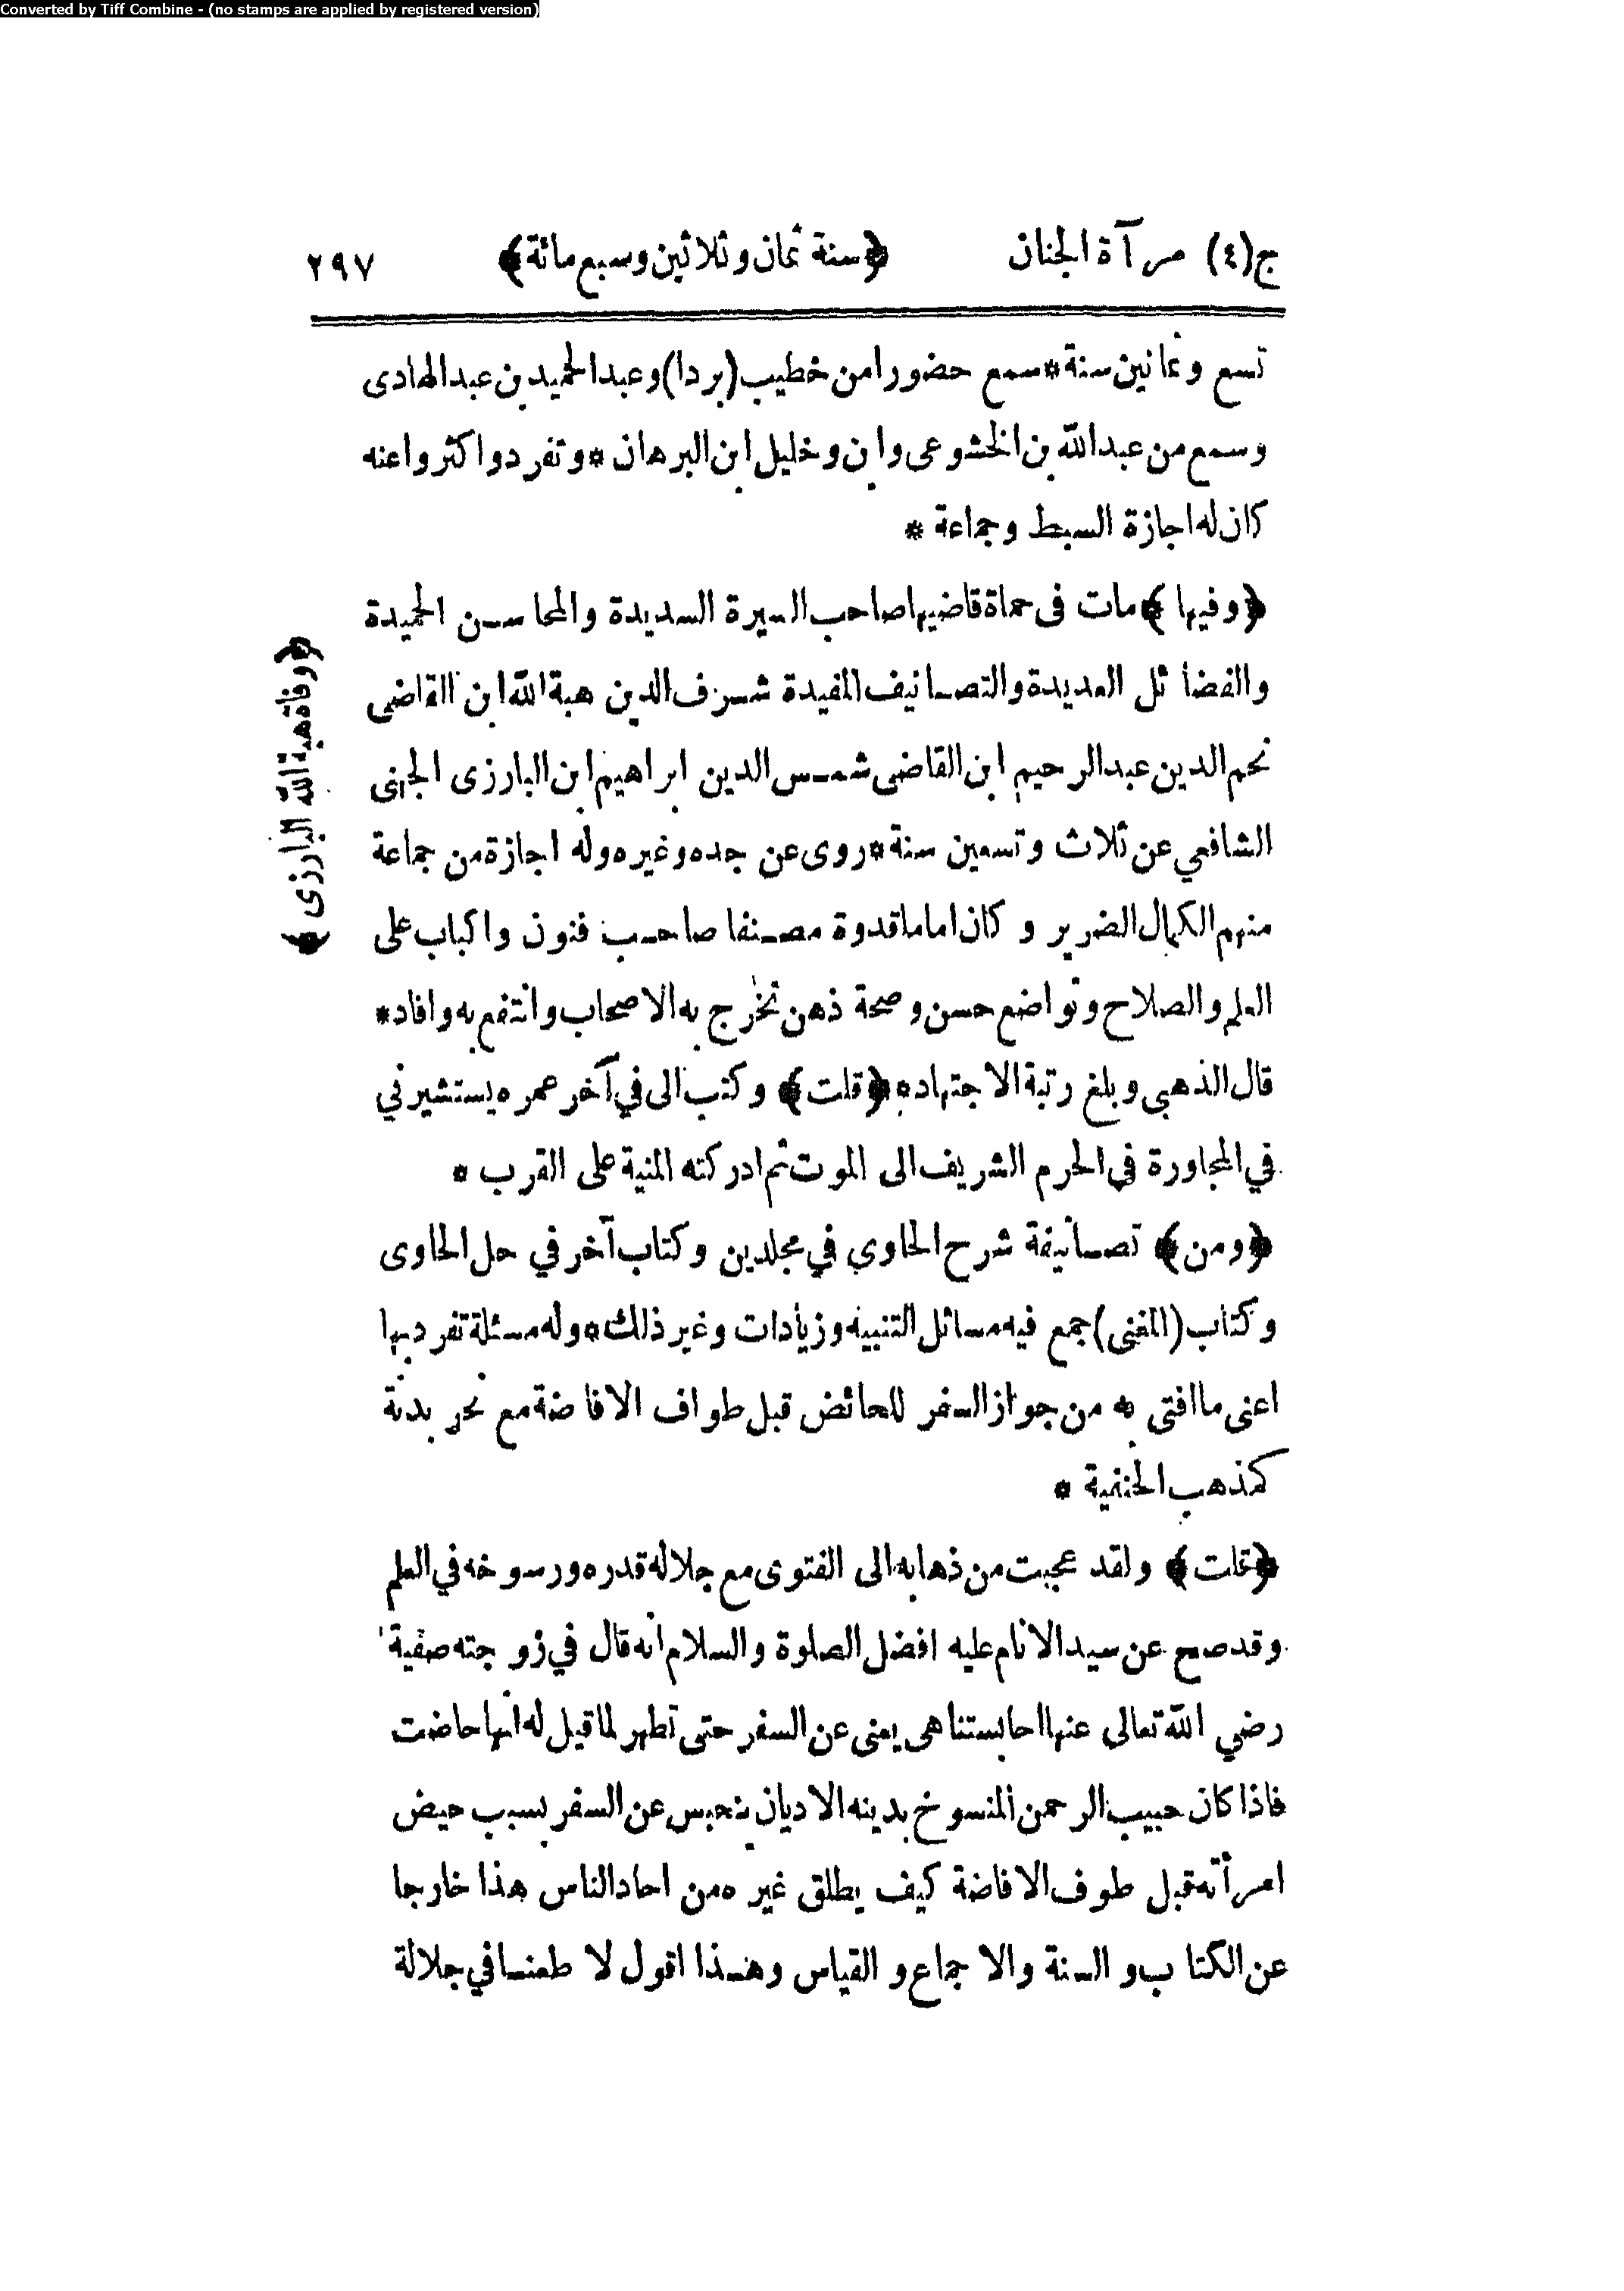 Converted by Tiff Combine - (no stamps are applied by registered version)
ج(٤) مرآة الجنان ﴿سنة ثمان وثلاثين وسبع مائة﴾ ٢٩٧
تسع وثمانين سنة * سمع حضورا من خطيب (بردا) وعبد الحميد بن عبد الهادى
وسمع من عبد الله بن الخشوعى وابن وخليل ابن البرهان * وتفردوا كثروا عنه
كان له اجازة السبط وجماعة *
﴿وفيها﴾ مات فى حماة قاضيها صاحب السيرة السديدة والمحاسن الحميدة
والفضائل العديدة والتصانيف المفيدة شرف الدين هبة الله ابن القاضى
نجم الدين عبد الرحيم ابن القاضى شمس الدين ابراهيم ابن البارزى الجهنى
الشافعي عن ثلاث وتسعين سنة * روى عن جده وغيره وله اجازة من جماعة
منهم الكمال الضرير و كان اماما قدوة مصنفا صاحب فنون واكباب على
العلم والصلاح وتواضع حسن وصحة ذهن تخرج به الاصحاب وانتفع به وافاد *
قال الذهبى وبلغ رتبة الاجتهاد * ﴿قلت﴾ وكتب الى في آخر عمره يستشير في
في المجاورة في الحرم الشريف الى الموت ثم ادركته المنية على القرب *
﴿ومن﴾ تصانيفة شرح الحاوي في مجلدين وكتاب آخر في حل الحاوى
وكتاب (المغنى) جمع فيه مسائل التنبيه وزيادات وغير ذلك * وله مسئلة تفرد بها
اعنى ما افتى به من جواز السفر للحائض قبل طواف الافاضة مع نحر بدنة
كمذهب الحنفية *
﴿قلت﴾ ولقد عجبت من ذهابه الى الفتوى مع جلالة قدره ورسوخه في العلم
وقد صح عن سيد الانام عليه افضل الصلوة والسلام انه قال في زوجته صفية
رضي الله تعالى عنها احابستنا هى يعنى عن السفر حتى تطهر لما قيل له انها حاضت
فاذا كان حبيب الرحمن المنسوخ بدينه الاديان ينحبس عن السفر بسبب حيض
امرأته قبل طوف الافاضة كيف يطلق غيره من احاد الناس هذا خارجا
عن الكتاب والسنة والاجماع والقياس وهذا اقول لا طعنا في جلالة
﴿وفاة هبة الله البارزى﴾